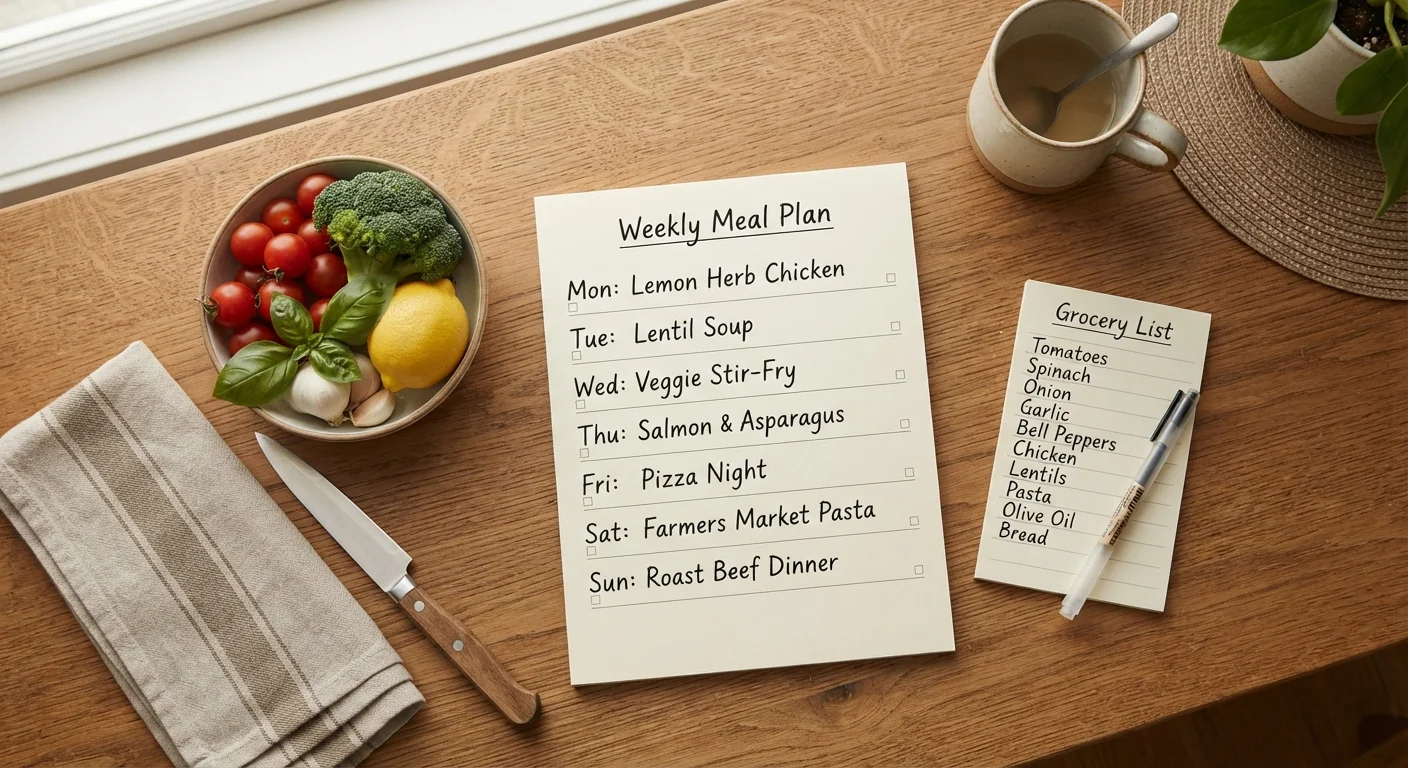 Weekly Meal Plan
Mon: Lemon Herb Chicken
Tue: Lentil Soup
Wed: Veggie Stir-Fry
Thu: Salmon & Asparagus
Fri: Pizza Night
Sat: Farmers Market Pasta
Sun: Roast Beef Dinner
Grocery List
Tomatoes
Spinach
Onion
Garlic
Bell Peppers
Chicken
Lentils
Pasta
Olive Oil
Bread